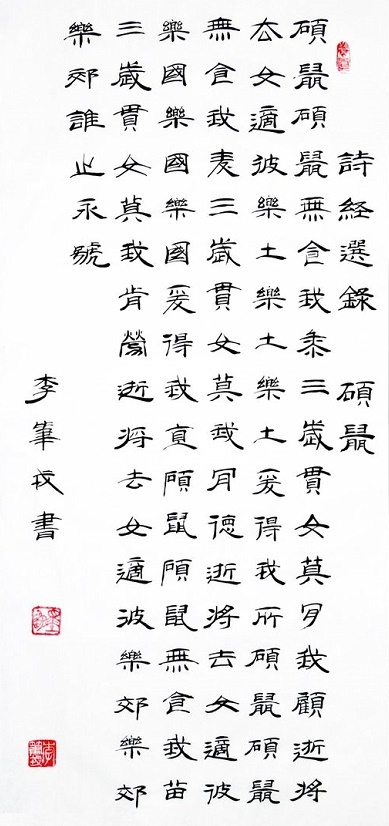 詩経選錄 碩鼠
碩鼠碩鼠無食我黍三歲貫女莫肎我顧逝將
去女適彼樂土樂土樂土爰得我所碩鼠碩鼠
無食我麦三歲貫女莫我肎德逝將去女適彼
樂國樂國樂國爰得我直碩鼠碩鼠無食我苗
三歲貫女莫我肯勞逝将去女適彼樂郊樂郊
樂郊誰之永號
李筆戎書